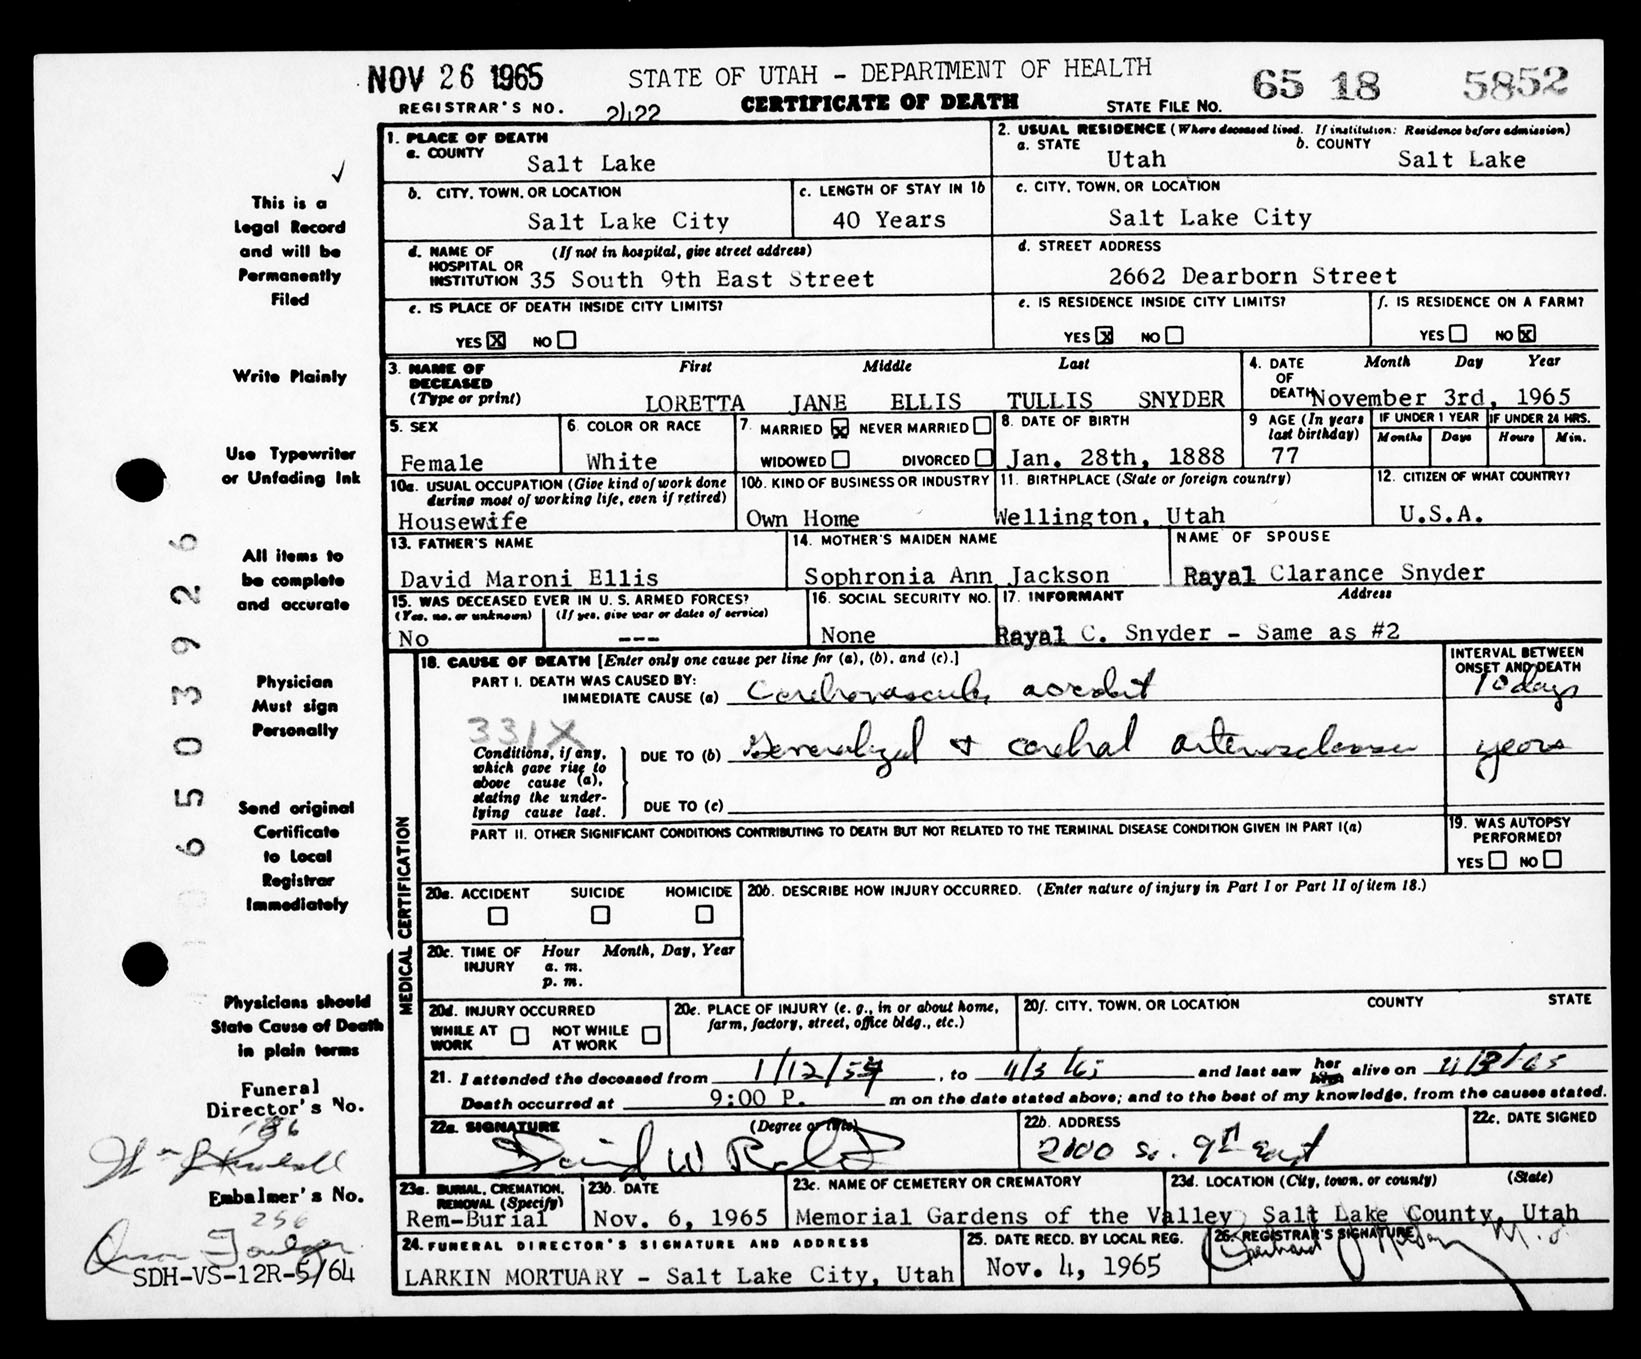 NOV 26 1965 STATE OF UTAH – DEPARTMENT OF HEALTH 65 18 5852
REGISTRAR'S NO. 2422 CERTIFICATE OF DEATH STATE FILE NO.
This is a
Legal Record
and will be
Permanently
Filed
Write Plainly
Use Typewriter
or Unfading Ink
All items to
be complete
and accurate
Physician
Must sign
Personally
Send original
Certificate
to Local
Registrar
Immediately
Physicians should
State Cause of Death
in plain terms
Funeral
Director's No.
186
Embalmer's No.
256
SDH-VS-12R-5/64
6503926
1. PLACE OF DEATH
a. COUNTY Salt Lake
2. USUAL RESIDENCE (Where deceased lived. If institution: Residence before admission)
a. STATE Utah b. COUNTY Salt Lake
b. CITY, TOWN, OR LOCATION Salt Lake City
c. LENGTH OF STAY IN 1b 40 Years
c. CITY, TOWN, OR LOCATION Salt Lake City
d. NAME OF (If not in hospital, give street address)
HOSPITAL OR
INSTITUTION 35 South 9th East Street
d. STREET ADDRESS
2662 Dearborn Street
e. IS PLACE OF DEATH INSIDE CITY LIMITS?
YES X NO
e. IS RESIDENCE INSIDE CITY LIMITS?
YES X NO
f. IS RESIDENCE ON A FARM?
YES NO X
3. NAME OF First Middle Last
DECEASED
(Type or print) LORETTA JANE ELLIS TULLIS SNYDER
4. DATE Month Day Year
OF
DEATH November 3rd, 1965
5. SEX
Female
6. COLOR OR RACE
White
7. MARRIED X NEVER MARRIED
WIDOWED DIVORCED
8. DATE OF BIRTH
Jan. 28th, 1888
9 AGE (In years
last birthday)
77
IF UNDER 1 YEAR IF UNDER 24 HRS.
Months Days Hours Min.
10a. USUAL OCCUPATION (Give kind of work done
during most of working life, even if retired)
Housewife
10b. KIND OF BUSINESS OR INDUSTRY
Own Home
11. BIRTHPLACE (State or foreign country)
Wellington, Utah
12. CITIZEN OF WHAT COUNTRY?
U.S.A.
13. FATHER'S NAME
David Maroni Ellis
14. MOTHER'S MAIDEN NAME
Sophronia Ann Jackson
NAME OF SPOUSE
Rayal Clarance Snyder
15. WAS DECEASED EVER IN U. S. ARMED FORCES?
(Yes, no, or unknown) (If yes, give war or dates of service)
No ---
16. SOCIAL SECURITY NO.
None
17. INFORMANT Address
Rayal C. Snyder – Same as #2
MEDICAL CERTIFICATION
18. CAUSE OF DEATH [Enter only one cause per line for (a), (b), and (c).]
INTERVAL BETWEEN
ONSET AND DEATH
PART I. DEATH WAS CAUSED BY:
IMMEDIATE CAUSE (a) Cerebrovascular accident 10 days
331X
Conditions, if any,
which gave rise to
above cause (a),
stating the under-
lying cause last.
DUE TO (b) Generalized & cerebral arteriosclerosis years
DUE TO (c)
PART II. OTHER SIGNIFICANT CONDITIONS CONTRIBUTING TO DEATH BUT NOT RELATED TO THE TERMINAL DISEASE CONDITION GIVEN IN PART I(a)
19. WAS AUTOPSY
PERFORMED?
YES NO
20a. ACCIDENT SUICIDE HOMICIDE
20b. DESCRIBE HOW INJURY OCCURRED. (Enter nature of injury in Part I or Part II of item 18.)
20c. TIME OF Hour Month, Day, Year
INJURY a. m.
p. m.
20d. INJURY OCCURRED
WHILE AT NOT WHILE
WORK AT WORK
20e. PLACE OF INJURY (e. g., in or about home,
farm, factory, street, office bldg., etc.)
20f. CITY, TOWN, OR LOCATION COUNTY STATE
21. I attended the deceased from 1/12/59, to 11/3/65 and last saw her alive on 11/3/65
Death occurred at 9:00 P. m on the date stated above; and to the best of my knowledge, from the causes stated.
22a. SIGNATURE (Degree or title)
David W
22b. ADDRESS
2100 So. 9th East
22c. DATE SIGNED
23a. BURIAL, CREMATION,
REMOVAL (Specify)
Rem-Burial
23b. DATE
Nov. 6, 1965
23c. NAME OF CEMETERY OR CREMATORY
Memorial Gardens of the Valley
23d. LOCATION (City, town, or county) (State)
Salt Lake County, Utah
24. FUNERAL DIRECTOR'S SIGNATURE AND ADDRESS
LARKIN MORTUARY – Salt Lake City, Utah
25. DATE RECD. BY LOCAL REG.
Nov. 4, 1965
26. REGISTRAR'S SIGNATURE
M.D.